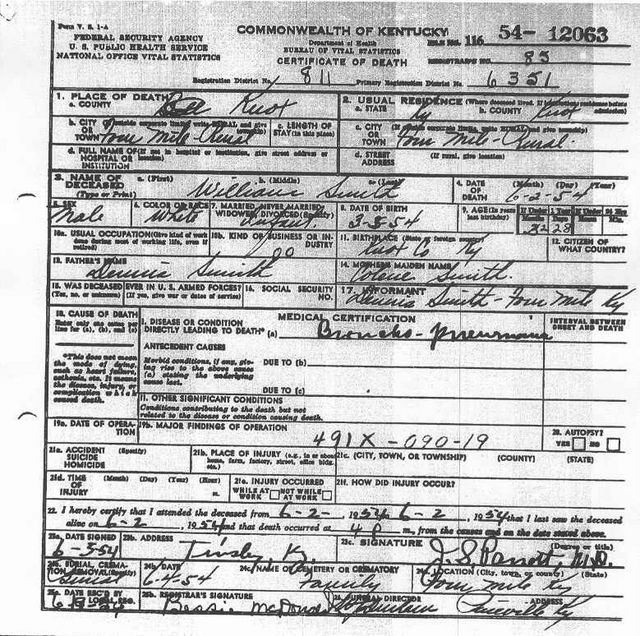 Form V. S. 1-A
COMMONWEALTH OF KENTUCKY
FEDERAL SECURITY AGENCY
U. S. PUBLIC HEALTH SERVICE
NATIONAL OFFICE VITAL STATISTICS
Department of Health
BUREAU OF VITAL STATISTICS
CERTIFICATE OF DEATH
FILE NO. 116 54- 12063
REGISTRAR'S NO. 85
Registration District No. 811 Primary Registration District No. 6351
1. PLACE OF DEATH
a. COUNTY Knox
2. USUAL RESIDENCE (Where deceased lived. If institution: residence before admission)
a. STATE Ky b. COUNTY Knox
b. CITY OR TOWN Four Mile-Rural
c. LENGTH OF STAY (in this place)
c. CITY OR TOWN Four Mile-Rural
d. FULL NAME OF HOSPITAL OR INSTITUTION (If not in hospital or institution, give street address or location)
d. STREET ADDRESS (If rural, give location)
3. NAME OF DECEASED (Type or Print) a. (First) b. (Middle) c. (Last)
William Smith
4. DATE OF DEATH (Month) (Day) (Year)
6-2-54
5. SEX Male
6. COLOR OR RACE White
7. MARRIED, NEVER MARRIED, WIDOWED, DIVORCED (Specify) Infant
8. DATE OF BIRTH 3-5-54
9. AGE (In years last birthday) If Under 1 Year Months Days If Under 24 Hrs. Hours Min.
2 28
10a. USUAL OCCUPATION (Give kind of work done during most of working life, even if retired)
10b. KIND OF BUSINESS OR INDUSTRY
11. BIRTHPLACE (State or foreign country) Knox Co Ky
12. CITIZEN OF WHAT COUNTRY?
13. FATHER'S NAME Smith
14. MOTHER'S MAIDEN NAME Smith
15. WAS DECEASED EVER IN U. S. ARMED FORCES? (Yes, no, or unknown) (If yes, give war or dates of service)
16. SOCIAL SECURITY NO.
17. INFORMANT Smith - Four Mile Ky
18. CAUSE OF DEATH
Enter only one cause per line for (a), (b), and (c)
MEDICAL CERTIFICATION
INTERVAL BETWEEN ONSET AND DEATH
I. DISEASE OR CONDITION DIRECTLY LEADING TO DEATH* (a) Broncho-pneumonia
*This does not mean the mode of dying, such as heart failure, asthenia, etc. It means the disease, injury, or complication which caused death.
ANTECEDENT CAUSES
Morbid conditions, if any, giving rise to the above cause (a) stating the underlying cause last.
DUE TO (b)
DUE TO (c)
II. OTHER SIGNIFICANT CONDITIONS
Conditions contributing to the death but not related to the disease or condition causing death.
19a. DATE OF OPERATION
19b. MAJOR FINDINGS OF OPERATION
491X-090-19
20. AUTOPSY? YES NO
21a. ACCIDENT SUICIDE HOMICIDE (Specify)
21b. PLACE OF INJURY (e.g., in or about home, farm, factory, street, office bldg. etc.)
21c. (CITY, TOWN, OR TOWNSHIP) (COUNTY) (STATE)
21d. TIME OF INJURY (Month) (Day) (Year) (Hour) m.
21e. INJURY OCCURRED WHILE AT WORK NOT WHILE AT WORK
21f. HOW DID INJURY OCCUR?
22. I hereby certify that I attended the deceased from 6-2-, 1954 to 6-2, 1954 that I last saw the deceased
alive on 6-2, 1954 and that death occurred at 4 P m., from the causes and on the date stated above.
23a. DATE SIGNED 6-3-54
23b. ADDRESS Tinsley Ky.
23c. SIGNATURE (Degree or title) M.D.
24a. BURIAL, CREMATION, REMOVAL (Specify) Burial
24b. DATE 6-4-54
24c. NAME OF CEMETERY OR CREMATORY Family
24d. LOCATION (City, town, or county) (State) Four Mile Ky
25a. DATE REC'D BY LOCAL REG.
25b. REGISTRAR'S SIGNATURE Bessie McDonald
26. FUNERAL DIRECTOR ADDRESS Pineville Ky